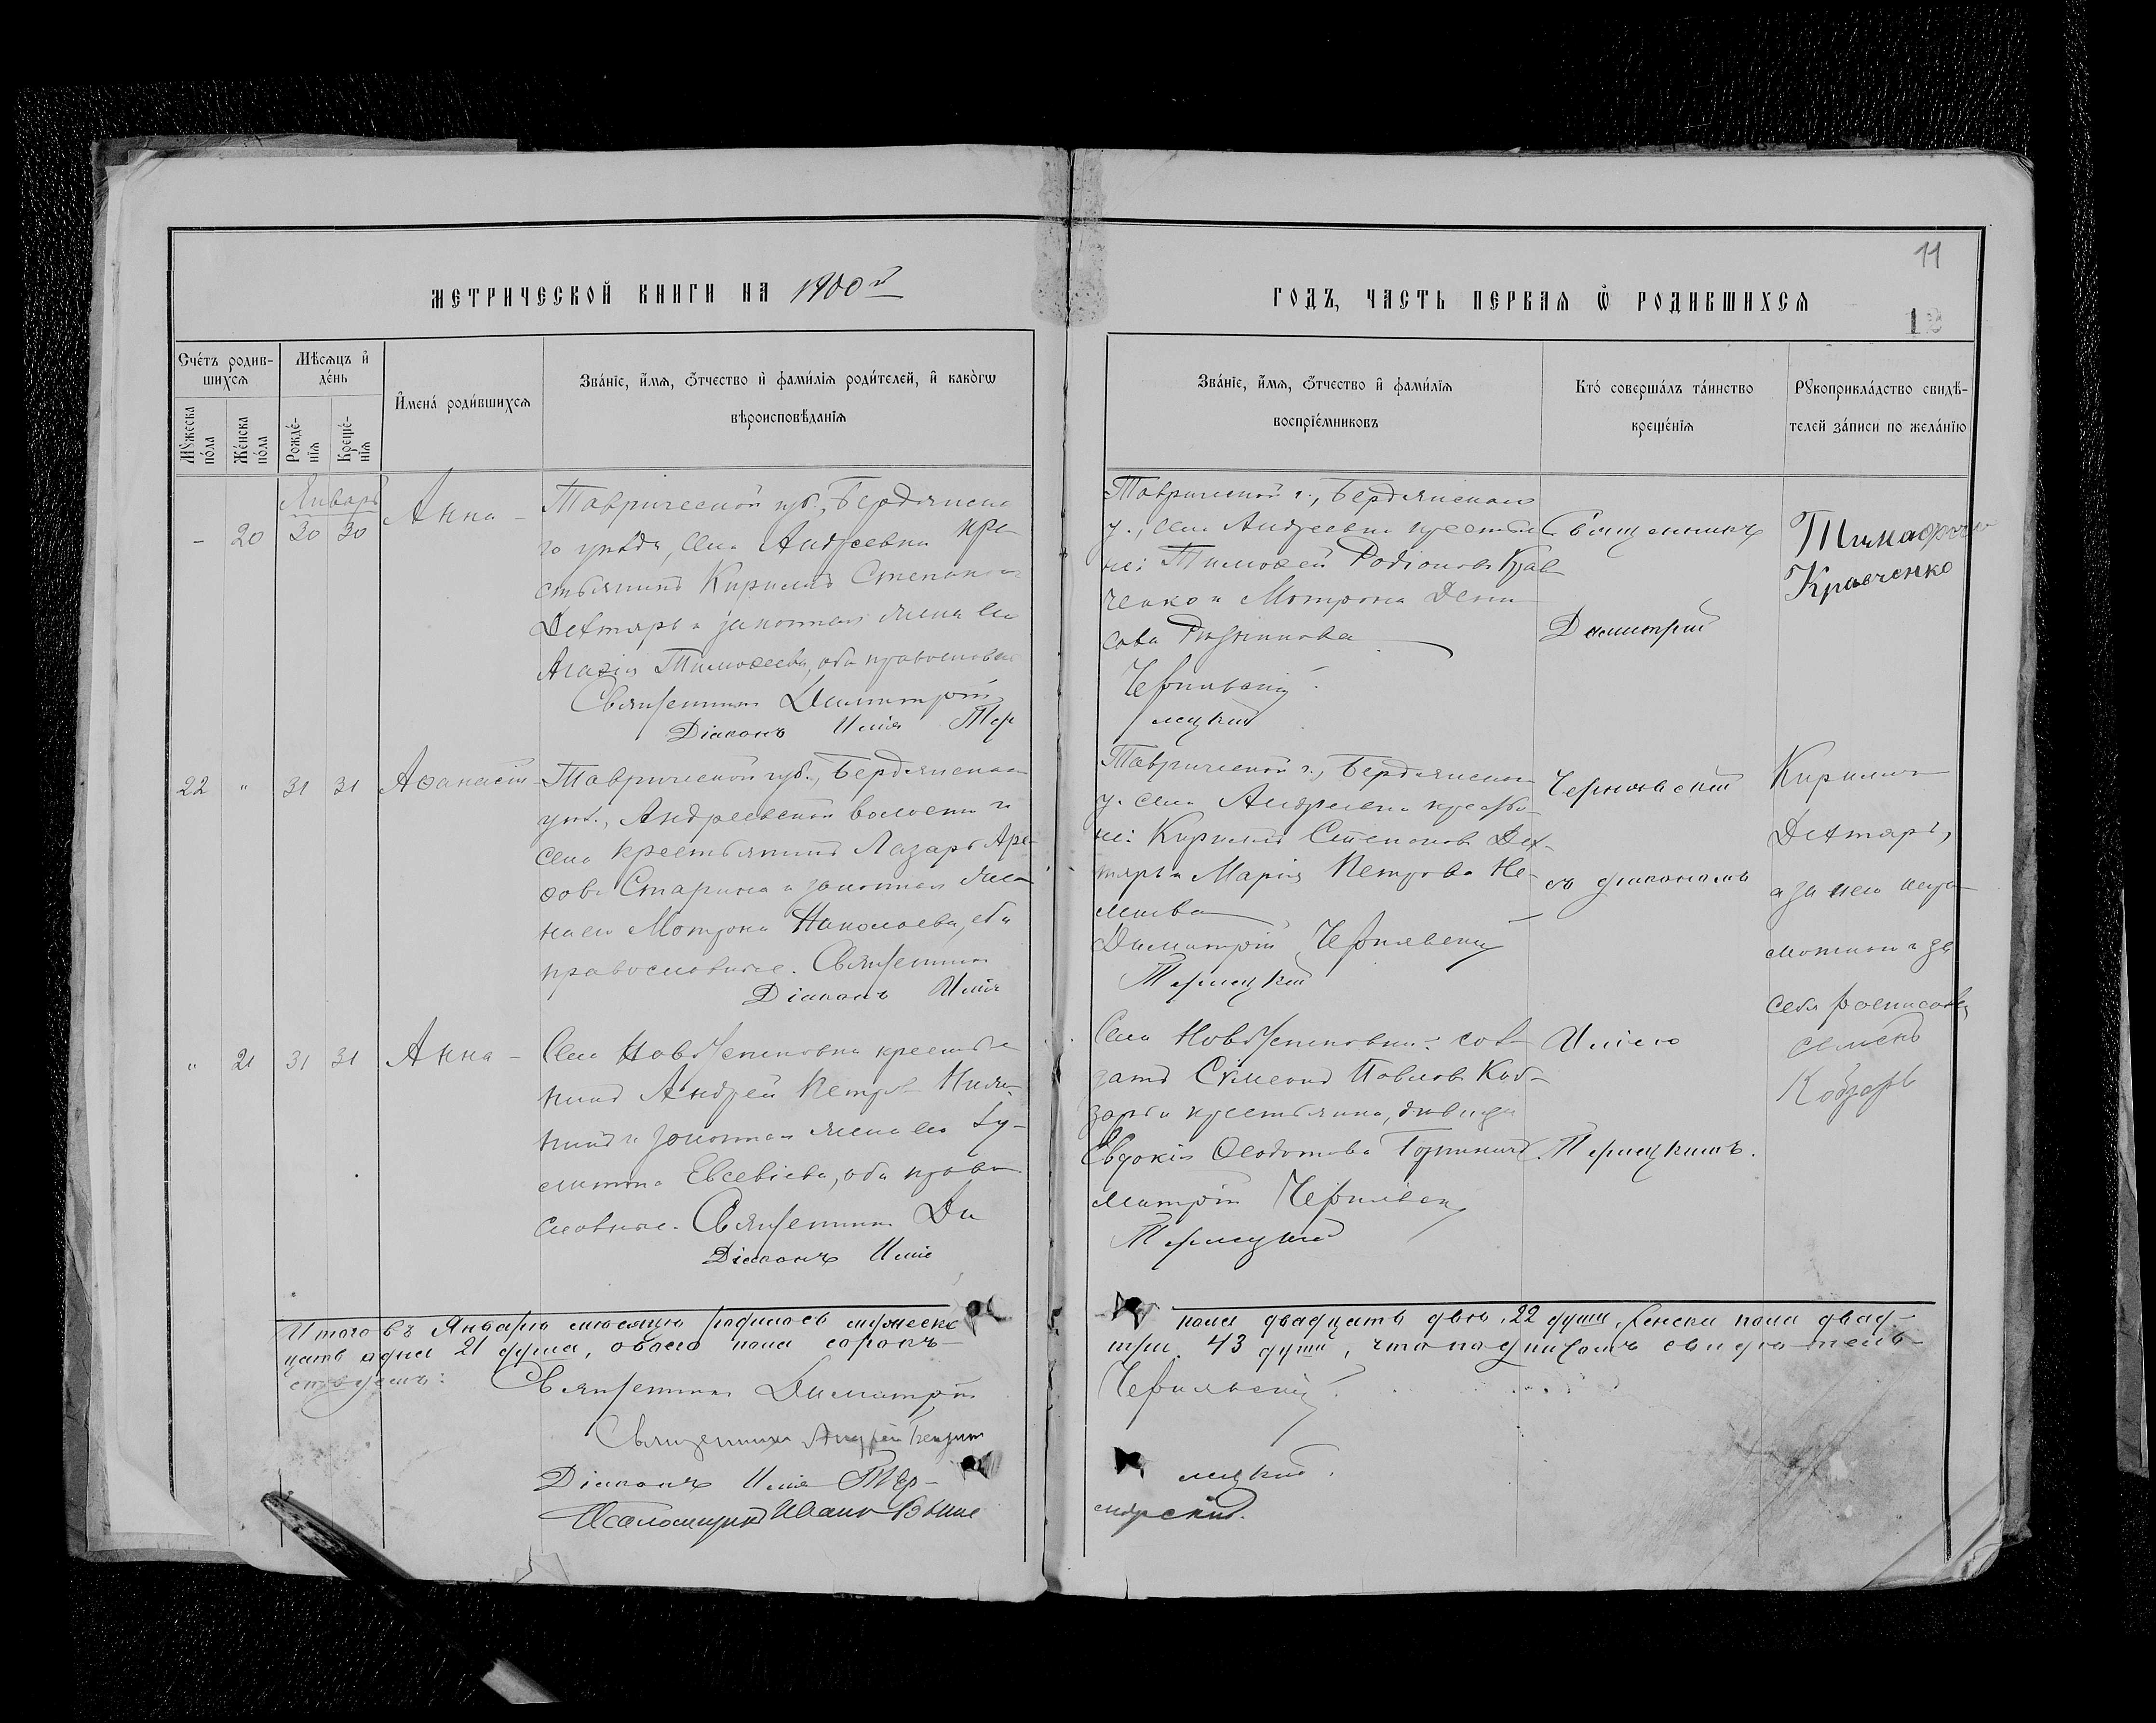 11
12
МЕТРИЧЕСКОЙ КНИГИ НА 1900й
ГОДЪ, ЧАСТЬ ПЕРВАЯ Ѡ РОДИВШИХСЯ
Счетъ родив-
шихся
Мѣсяцъ и
день
Имена родившихся
Званіе, имя, отчество и фамилія родителей, и какогѡ
вѣроисповѣданія
Мужеска
пола
Женска
пола
Рожде-
нія
Креще-
нія
Званіе, имя, отчество и фамилія
воспріемниковъ
Кто совершалъ таинство
крещенія
Рукоприкладство свидѣ-
телей записи по желанію
Январь
- 20 30 30 Анна -
Таврической губ., Бердянска
го уѣзда, села Андреевки кре-
стьянинъ Кириллъ Степановъ
Дехтярь и законная жена его
Агафія Тимофеева, оба православные
Священникъ Димитрій
Діаконъ Илія Тер
Таврической г., Бердянскаго
у., села Андреевки крестья
не: Тимофей Родіоновъ Крав
ченко и Мотрона Дени
сова
Чернявскій
лецкій
Священникъ
Димитрій
Тимофей
Кравченко
22 " 31 31 Афанасій -
Таврической губ., Бердянскаго
уѣз., Андреевской волости и
села крестьянинъ Лазарь Аре-
фовъ Старина и законная же-
на его Мотрона Николаева, оба
православные. Священникъ
Діаконъ Илія
Таврической г., Бердянскаго
у. села Андреевки крестья-
не: Кириллъ Степановъ Дех-
тярь и Марія Петрова Не-
Димитрій Чернявскій
Терлецкій
Чернявскій
съ діакономъ
Кириллъ
Дехтярь,
а за нею негра-
мотною и за
себя росписался
Семенъ
Кобзарь
" 21 31 31 Анна -
Села Новоуспеновки крестья
нинъ Андрей Петровъ
и законная жена его Гу-
Евсевіева, оба право
славные. Священникъ Ди
Діаконъ Илія
Села Новоуспеновки: сол-
датъ Сѵмеонъ Павловъ Коб-
зарь и крестьянка, дѣвица
Евдокія Федотова
митрій Чернявскій
Терлецкій
Иліею
Терлецкимъ.
Итого въ Январѣ мѣсяцѣ родилось мужеска
пола двадцать двѣ, 22 души, женска пола двад-
цать одна 21 душа, обоего пола сорокъ
три 43 души, что подписомъ свидѣтель-
ствуемъ: Священникъ Димитрій
Чернявскій
Священникъ Андрей
Діаконъ Илія Тер-
лецкій.
Псаломщикъ Иванъ Выше
мирскій.